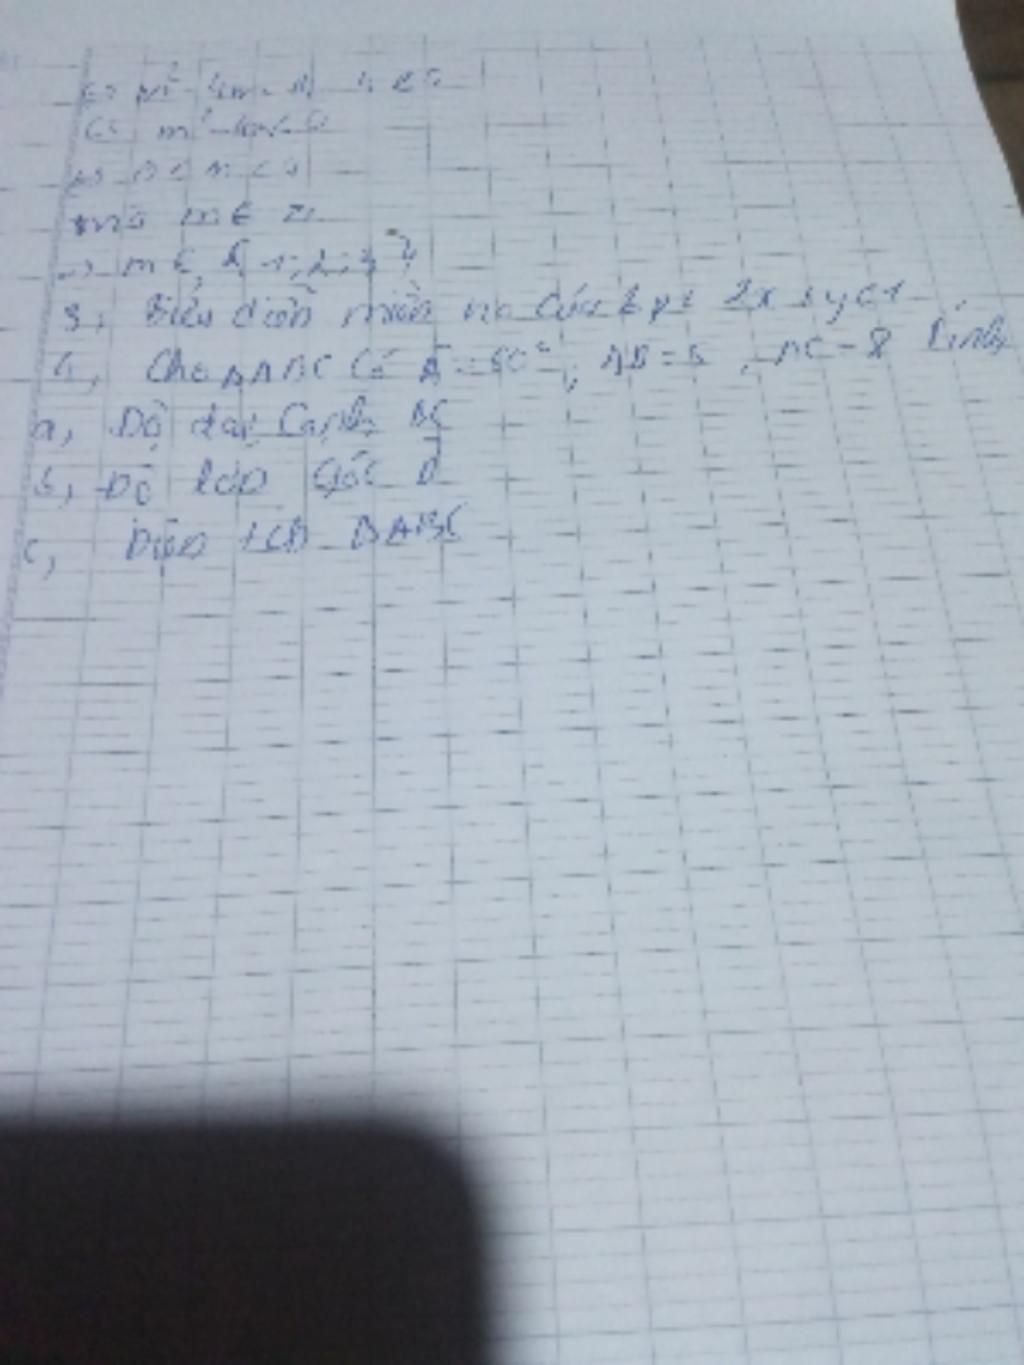 m² - 4m
<=> m² - 4m < 0
<=> 0 < m < 4
mà m ∈ Z
=> m ∈ { 1; 2; 3 }
3, Biểu diễn miền no của bpt 2x + y < 1
4, Cho ΔABC có Â = 60°, AB = 5, AC = 8 Tính
a, Độ dài cạnh BC
b, Độ lớn góc B
c, Diện tích ΔABC